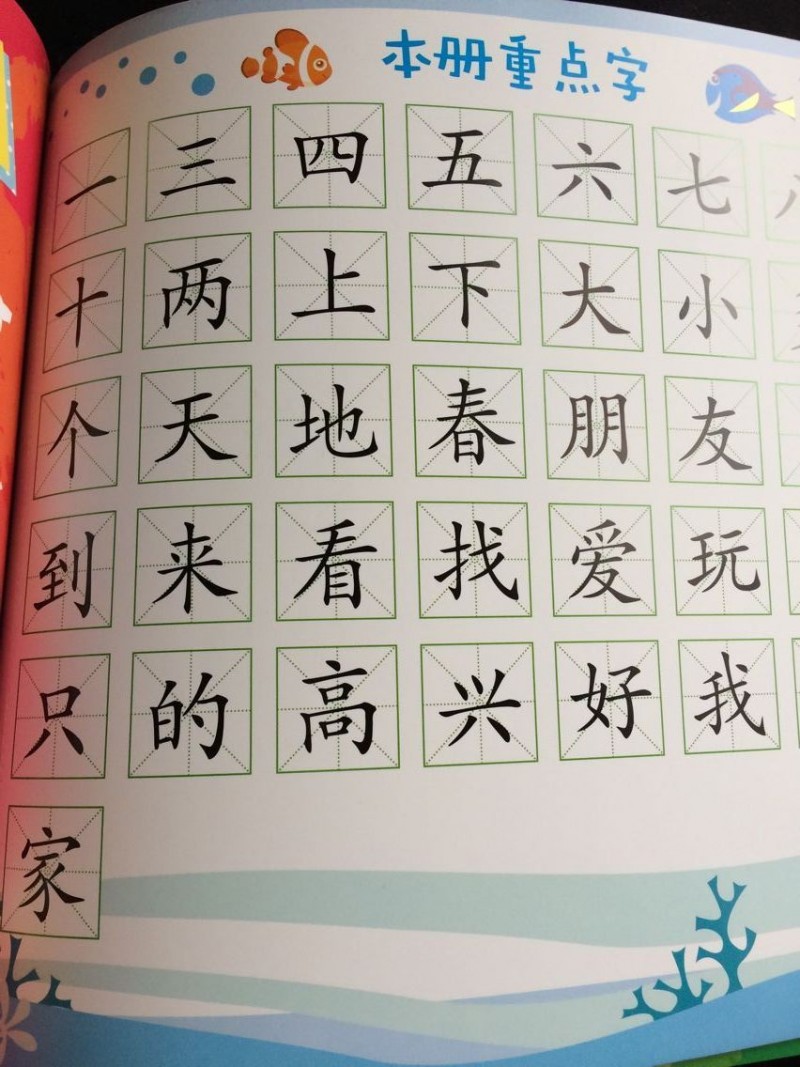 本册重点字
一 三 四 五 六 七 八
十 两 上 下 大 小
个 天 地 春 朋 友
到 来 看 找 爱 玩
只 的 高 兴 好 我
家